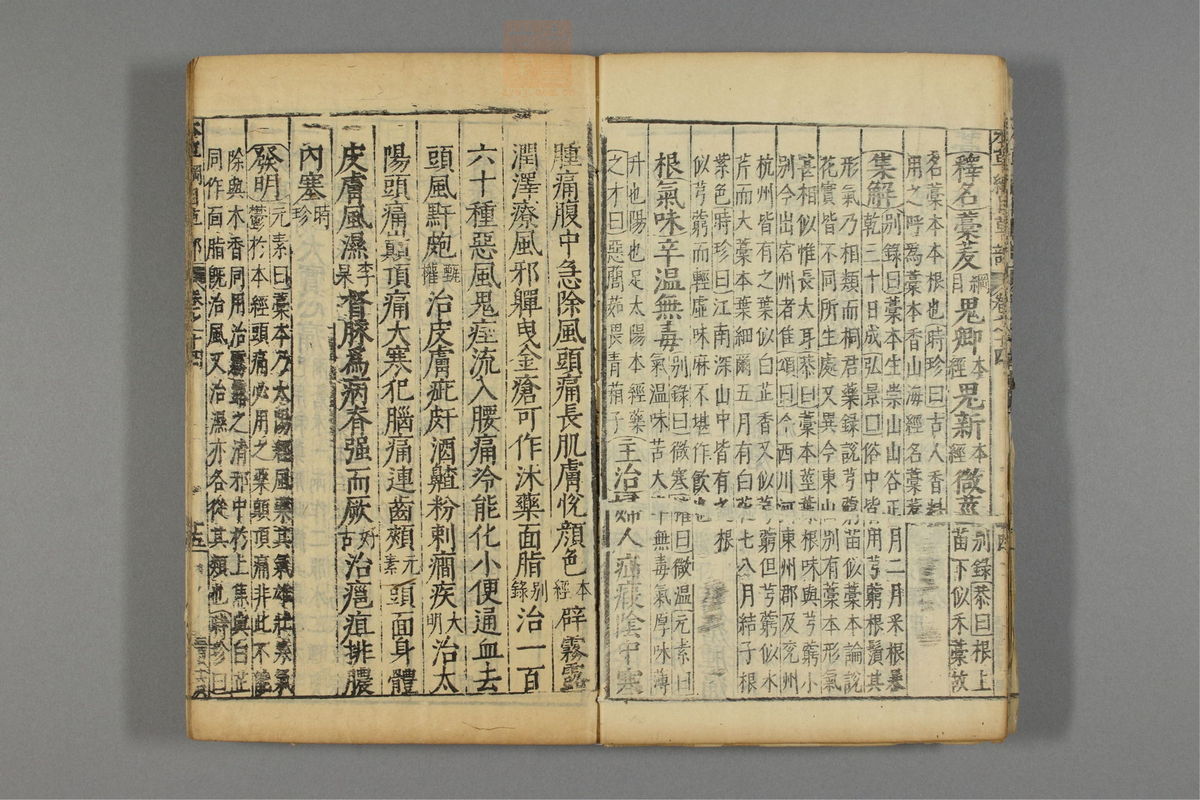 本草綱目草部 卷之十四
釋名藁茇綱目鬼卿本經鬼新本經微莖別錄恭曰根上
苗下似禾藁故
名藁本本根也時珍曰古人香料
用之呼為藁本香山海經名藁茇
集解別錄曰藁本生崇山山谷正月二月采根暴
乾三十日成弘景曰俗中皆用芎藭根鬚其
形氣乃相類而桐君藥錄說芎藭苗似藁本論說
花實皆不同所生處又異今東山別有藁本形氣
甚相似惟長大耳恭曰藁本莖葉根味與芎藭小
別今出宕州者佳頌曰今西川河東州郡及兗州
杭州皆有之葉似白芷香又似芎藭但芎藭似水
芹而大藁本葉細爾五月有白花七八月結子根
紫色時珍曰江南深山中皆有之根
似芎藭而輕虛味麻不堪作飲也
根氣味辛溫無毒別錄曰微寒權曰微溫元素曰
氣溫味苦大辛無毒氣厚味薄
升也陽也足太陽本經藥
之才曰惡䕡茹畏青葙子主治婦人疝瘕陰中寒
腫痛腹中急除風頭痛長肌膚悅顏色本經辟霧露
潤澤療風邪軃曳金瘡可作沐藥面脂別錄治一百
六十種惡風鬼疰流入腰痛冷能化小便通血去
頭風䵟皰甄權治皮膚疵皯酒齄粉刺癇疾大明治太
陽頭痛巔頂痛大寒犯腦痛連齒頰元素頭面身體
皮膚風濕李杲督脈為病脊强而厥好古治癰疽排膿
內塞時珍
發明元素曰藁本乃太陽經風藥其氣雄壯寒氣
鬱於本經頭痛必用之藥顛頂痛非此不能
除與木香同用治霧露之清邪中於上焦與白芷
同作面脂既治風又治濕亦各從其類也時珍曰
本草綱目草部 卷之十四 十五